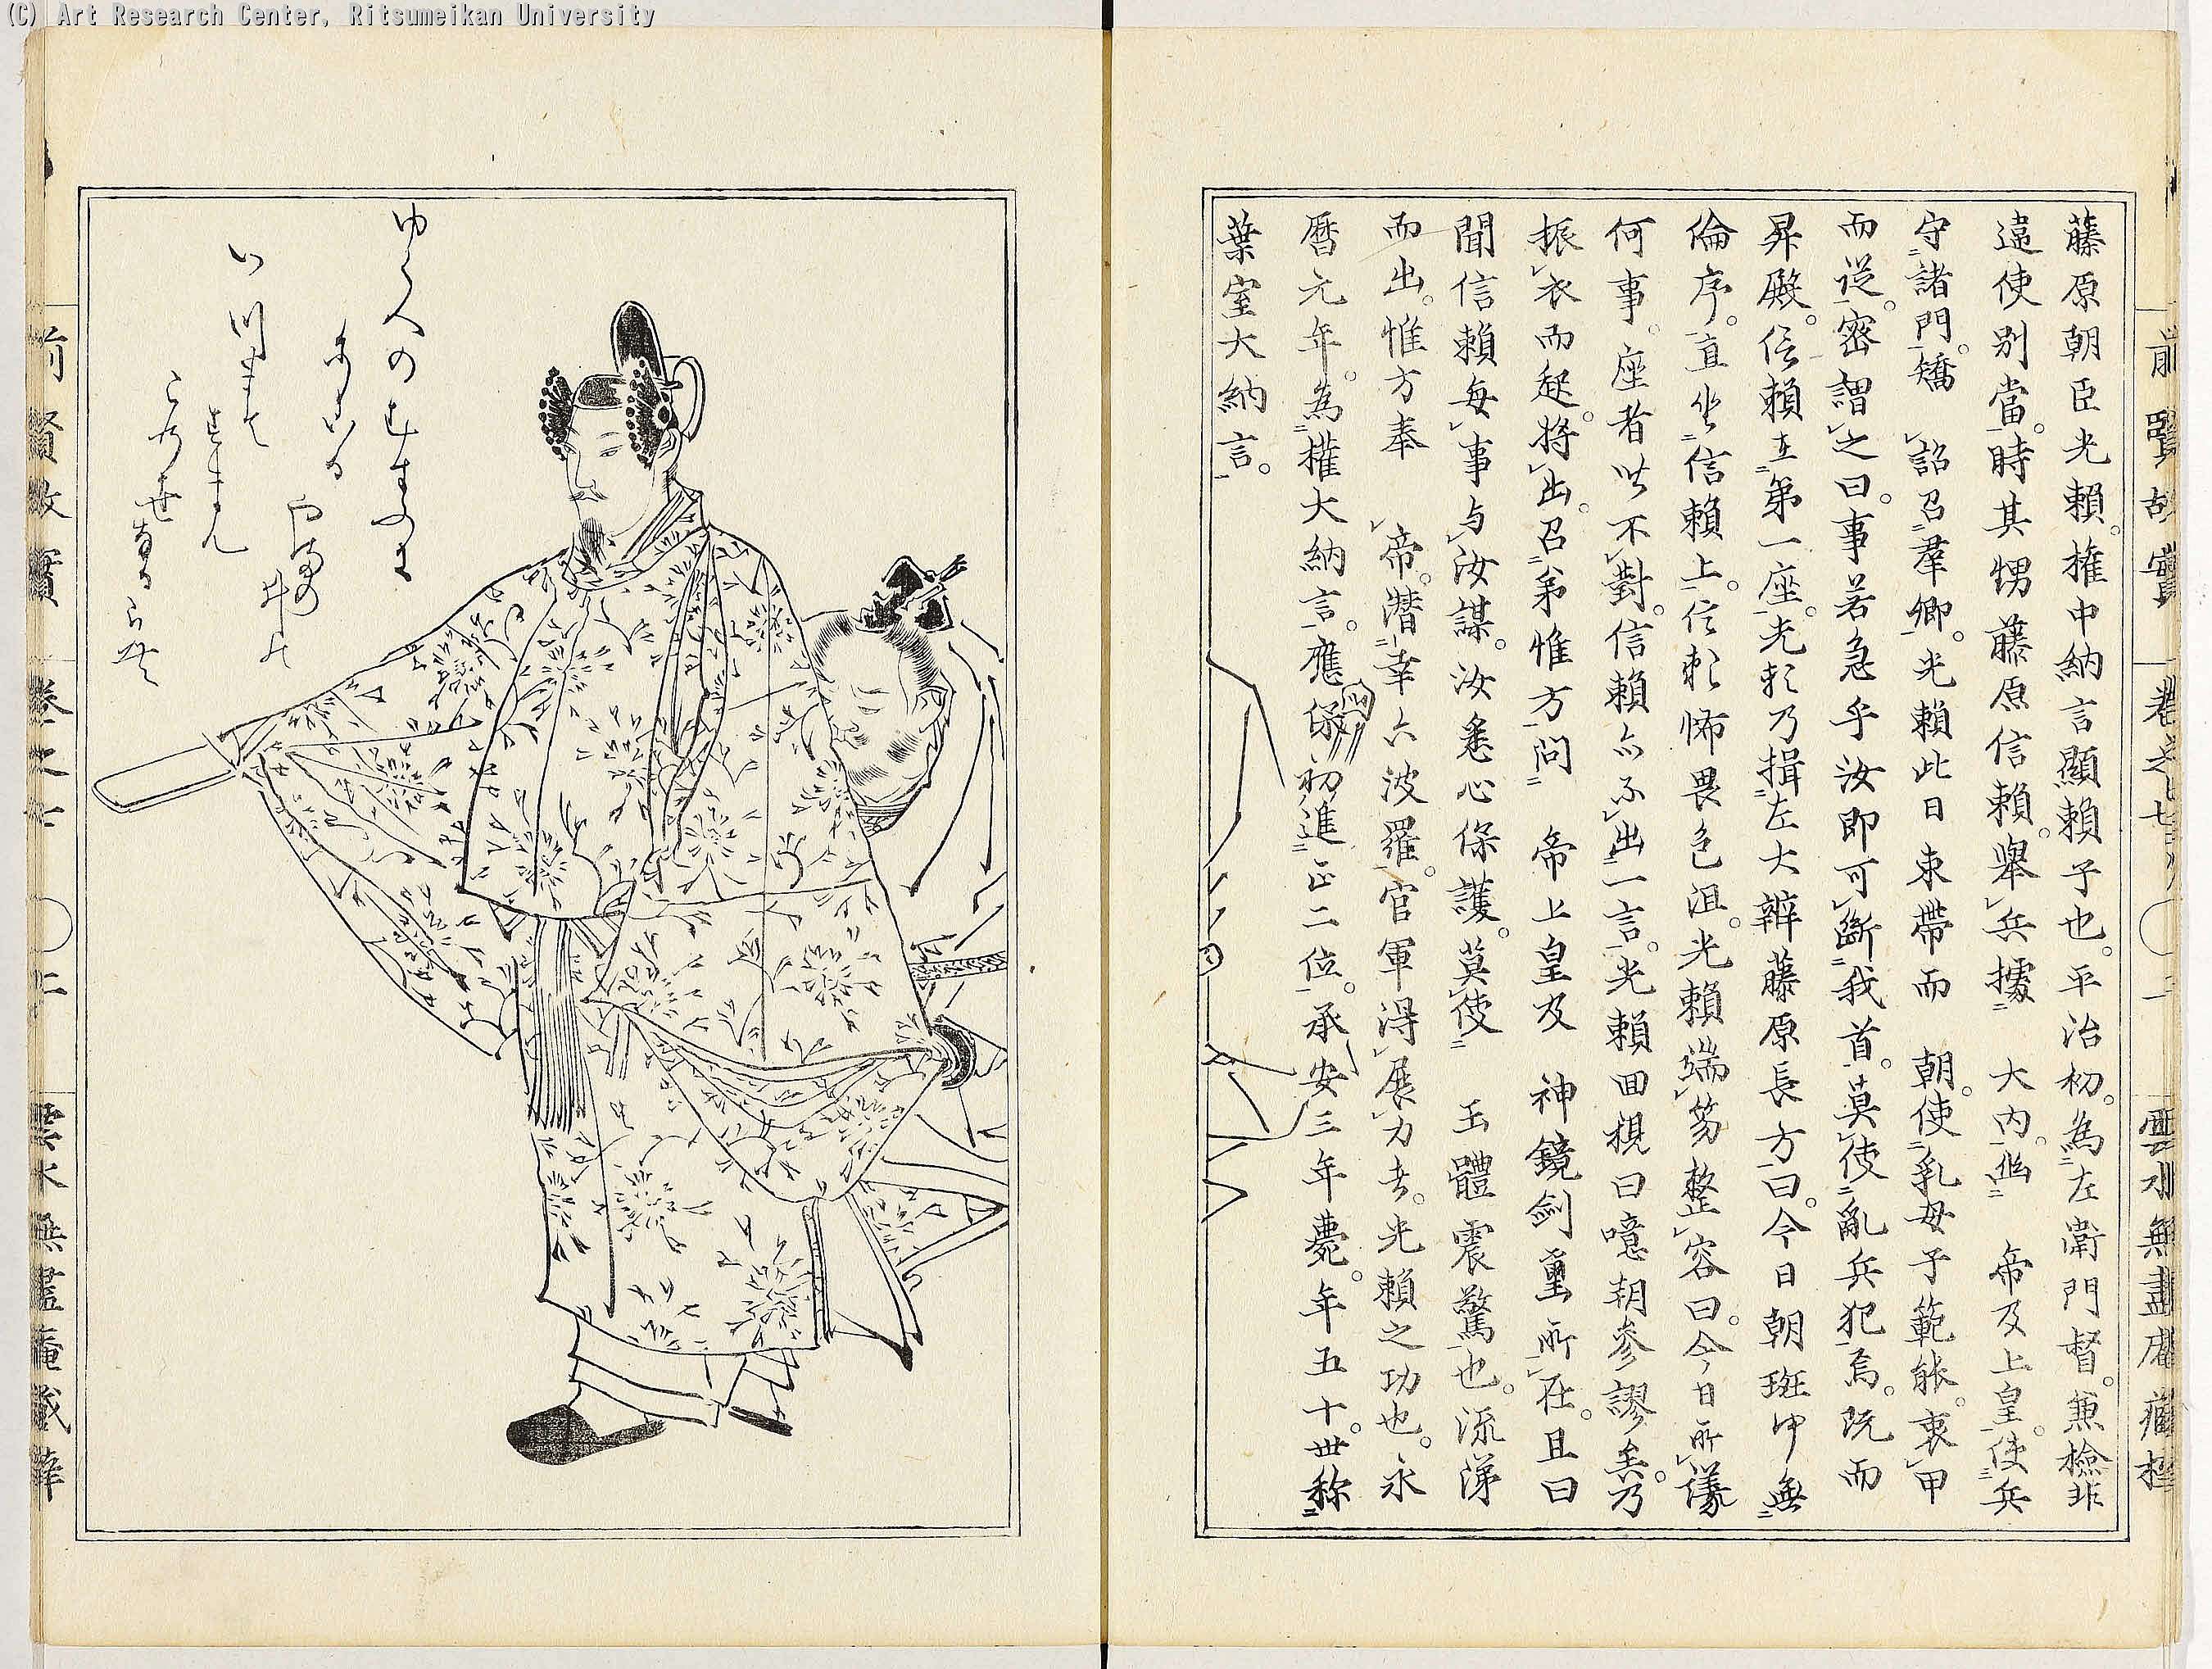 (C) Art Research Center, Ritsumeikan University
前賢故實 卷之七 二 雲水無盡庵藏梓
藤原朝臣光賴。權中納言顯賴子也。平治初。為左衛門督。兼檢非
違使別當。時其甥藤原信賴。舉兵據 大內。幽 帝及上皇。使兵
守諸門。矯 詔召羣卿。光賴此日束帶而 朝。使乳母子範能。衷甲
而從。密謂之曰。事若急乎汝即可斷我首。莫使亂兵犯焉。既而
昇殿。信賴在第一座。光賴乃揖左大辨藤原長方曰。今日朝班中無
倫序。直坐信賴上。信賴怖畏色沮。光賴端笏整容曰。今日所議
何事。座者皆不對。信賴亦不出一言。光賴回視曰噫朝參謬矣。乃
振衣而起。將出。召弟惟方問 帝上皇及 神鏡劍璽所在。且曰
聞信賴每事与汝謀。汝悉心保護。莫使 玉體震驚也。流涕
而出。惟方奉 帝。潛幸六波羅。官軍得展力者。光賴之功也。永
曆元年。為權大納言。應保初進正二位。承安三年薨。年五十。世称
葉室大納言。
前賢故實 卷之七 二 雲水無盡庵藏梓